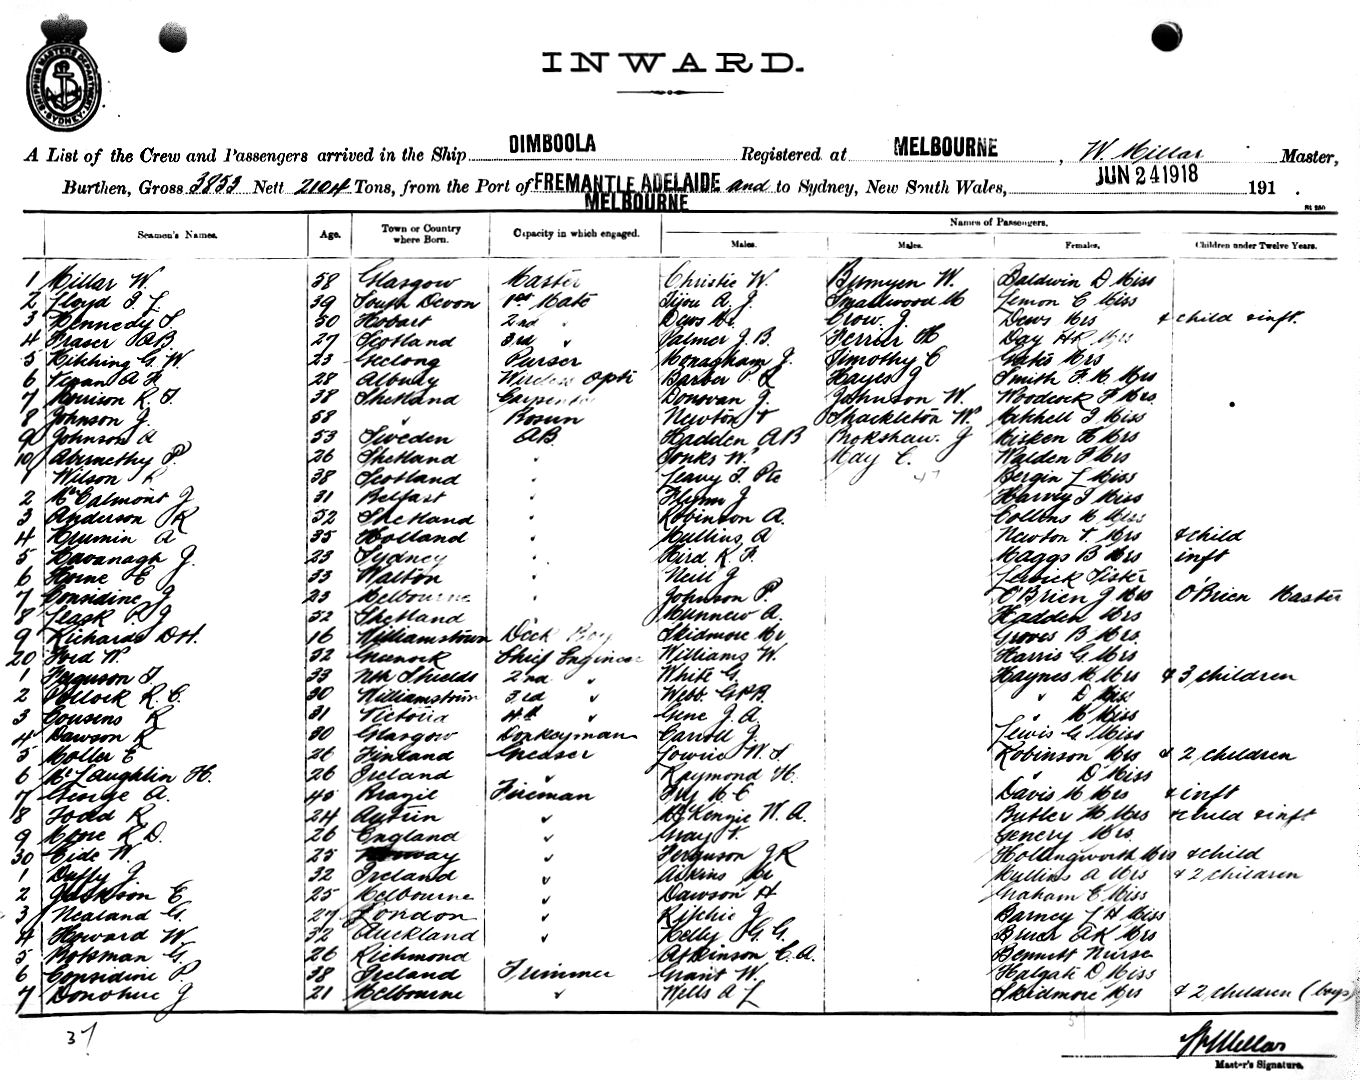 SHIPPING MASTER'S DEPARTMENT SYDNEY
INWARD.
A List of the Crew and Passengers arrived in the Ship DIMBOOLA Registered at MELBOURNE, W. Millar Master,
Burthen, Gross 3853 Nett 2104 Tons, from the Port of FREMANTLE ADELAIDE and to Sydney, New South Wales, JUN 24 1918 191 .
MELBOURNE
Names of Passengers.
Seamen's Names. Age. Town or Country where Born. Capacity in which engaged. Males. Males. Females. Children under Twelve Years.
1 Millar W. 58 Glasgow Master Christie W. W. Baldwin D Miss
2 Lloyd 39 South Devon 1st Mate A. J. Smallwood M Lemon C Miss
3 Kennedy 50 Hobart 2nd " Dews Mr. Crow. J Dews Mrs & child & inft.
4 Fraser 27 Scotland 3rd " Palmer J. B. Ferrier H Day Mrs
5 Kitching G. W 23 Geelong Purser Monagham J. Timothy C Mrs
6 28 Albury Wireless Opti Barber Hayes J Smith F. M. Mrs
7 Morrison R. J. 38 Shetland Carpenter Donovan J. Johnson W. Woodcock F Mrs.
8 Johnson J. 58 " Bosun Newton Shackleton W. Mitchell J Miss
9 Johnson A 53 Sweden AB. Hadden A B Brokshaw. J Misken H Mrs
10 Abernethy P. 26 Shetland " Jonks W. May C. Walden F Mrs
1 Wilson 38 Scotland " Leavy J. Pte Bergin L Miss
2 McCalmont J 31 Belfast " Flynn J Harvey J Miss
3 Anderson R 52 Shetland " Robinson A. Collins M Miss
4 Krumin A 35 Holland " Mullins A Newton Mrs & child
5 Kavanagh J. 23 Sydney " Bird R. F. Maggs B Mrs inft
6 Horne E 33 Walton " Neill J Sister
7 Considine J 23 Melbourne " Johnson P. O'Brien J Mrs O'Brien Master
8 Leask P. J 52 Shetland " A. Hadden Mrs
9 Richards D H. 16 Williamstown Deck Boy Skidmore Mr Groves B Mrs.
20 Ford W. 32 Greenock Chief Engineer Williams W. Harris G. Mrs
1 Ferguson J 33 Nth Shields 2nd " White G. Haynes M Mrs & 3 children
2 Pollock R. C. 30 Williamstown 3rd " Webb G. P. B. " D Miss
3 Cousens R 31 Victoria 4th " Gene J. A " M Miss
4 Dawson R 30 Glasgow Donkeyman Carroll J. Lewis G Miss
5 Moller E 26 Finland Greaser Lowrie W. J. Robinson Mrs & 2 children
6 McLaughlin H. 26 Ireland " Raymond H. " D Miss
7 George A. 40 Brazil Fireman Fry M C Davis M Mrs & inft
8 Todd R 24 " McKenzie W. A. Butler M Mrs & child & inft
9 Moore R. D. 26 England " Gray Genery Mrs.
30 Eide W. 25 Norway " Ferguson J R Hollingworth Mrs & child
1 Duffy J 32 Ireland " Aitkins Mr Mullins A Mrs & 2 children
2 Jackson E 25 Melbourne " Dawson H Graham E Miss
3 Nealand G. 27 London " Ritchie J Barney L H Miss
4 Howard W. 32 Auckland " Kelly P. G. G. A K Mrs
5 Botsman G. 26 Richmond " Atkinson C. A. Bennett Nurse
6 Considine P. 38 Ireland Trimmer Grant W. Halgate D Miss
7 Donohue J 21 Melbourne " Wells A L Skidmore Mrs & 2 children (boys)
37
W Millar
Master's Signature.